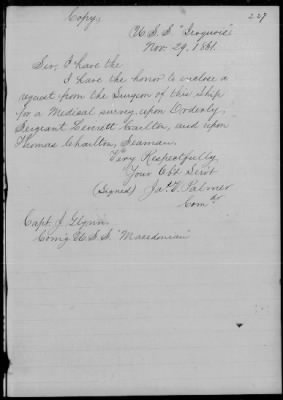 Copy.
227
U.S.S. "Iroquois"
Nov. 29, 1861.
Sir, I have the
I have the honor to enclose a
request from the Surgeon of this Ship
for a Medical survey upon Orderly
Sergeant Everett Walton, and upon
Thomas Charlton, Seaman.
Very Respectfully
Your Obt Servt
(Signed) Jas. S. Palmer
Comdr
Capt. J. Glynn
Comg U.S.S. "Macedonian"